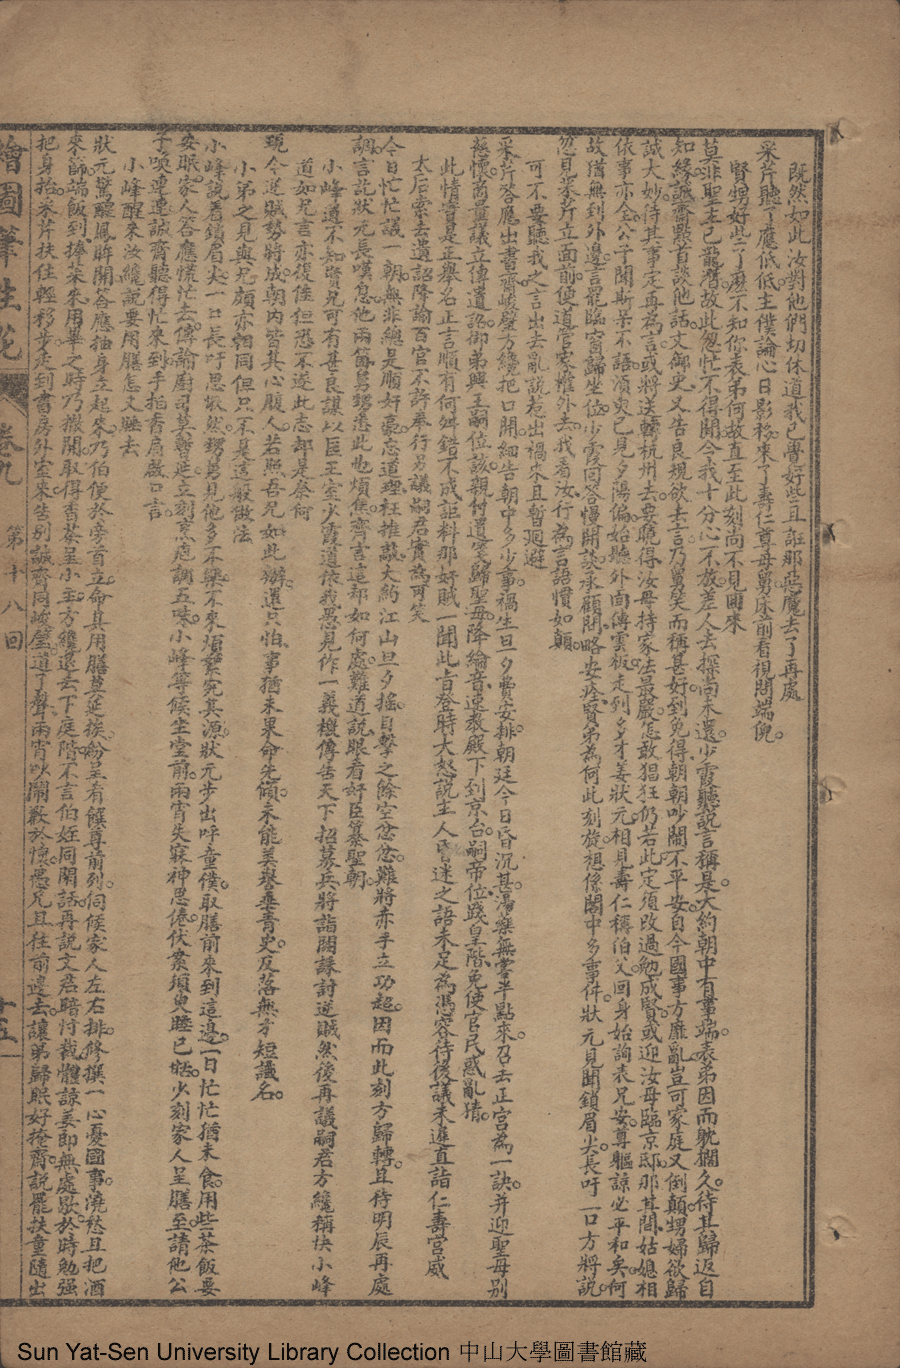 既然如此汝對他們切休道我已覺好些且誑那惡魔去了再處
采芹聽了麼低低主僕論心日影移來了壽仁尊母舅床前看視問端倪
賢甥好些了麼不知你表弟何故直至此刻尚不見回來
莫非聖主已龍潛故此怱忙不得閒今我十分心不放差人去探尚未還少霞聽說言稱是大約朝中有事端表弟因而躭擱久待其歸返自
知緣誠齋點首談他話文御史又告良規欲去言乃舅笑而稱甚好到免得朝朝吵鬧不平安自今國事方靡亂豈可家庭又倒顛甥婦欲歸
誠大妙待其事定再為言或將送轉杭州去要曉得汝母持家法最嚴怎敢猖狂仍若此定須改過勉成賢或迎汝母臨京邸那其間姑媳相
依事亦全公子聞斯呆不語須臾已見夕陽偏始聽外面傳雲板走到多才姜狀元相見壽仁稱伯父回身始詢表兄安尊軀諒必平和矣何
故猶無到外邊言罷臨窗歸坐位少霞回答慢開談承顧問略安痊賢弟為何此刻旋想係閣中多事件狀元見問鎖眉尖長吁一口方將說
忽見采芹立面前便道管家權外去我看汝行為言語慣如顛
可不要聽我之言出去亂說惹出禍來且暫迴避
采芹答應出書齋峻壁方纔把口開細告朝中多少事禍生旦夕費安排朝廷今日昏沉甚湯藥無嘗半點來召去正宮為一訣并迎聖母別
慈懷商量議立傳遺詔御弟興王嗣位該親付遺室歸聖母降綸音速教殿下到京台嗣帝位踐皇階免使官民惑亂猜
此情實是正舉名正言順有何舛錯不成詎料那奸賊一聞此旨登時大怒說主人昏迷之語未足為憑容待後議未遑直詣仁壽宮威
太后索去遺詔降諭百官不許奉行另議嗣君實為可笑
今日忙忙議一朝無非總是順奸豪忘道理枉推敲大約江山旦夕搖自擊之餘空忿忿難將赤手立功超因而此刻方歸轉且待明辰再處
調言訖狀元長嘆息他兩箇舅甥悉此也煩焦齊言這却如何處難道說眼看奸臣篡聖朝
小峰道不知賢兄可有甚良謀以臣王室少霞道依我愚見作一義檄傳告天下招募兵將詣闕誅討逆賊然後再議嗣君方纔稱快小峰
道如兄言亦復佳但恐不遂此志却是奈何
現今逆賊勢將成朝內皆其心腹人若照吾兄如此辦還只怕事猶未果命先傾未能美譽垂青史反落無才短識名
小弟之見與兄頗亦相同但只不是這般做法
小峰說着鎖眉尖一口長吁思黯然甥舅見他多不樂不來煩絮究其源狀元步出呼童僕取膳前來到這邊一日忙忙猶未食用些茶飯要
安眠家人答應慌忙去傳諭廚司莫暫延立刻烹庖調五味小峰等候坐堂前兩宵失寐神思倦伏案須臾睡已恬少刻家人呈膳至請他公
子喚連連誠齋聽得忙來到手拍香肩啟口言
小峰醒來汝纔說要用膳怎又睡去
狀元驚醒風眸開答應抽身立起來乃伯便於旁首立命其用膳莫延挨紛呈肴饌尊前列伺候家人左右排修撰一心憂國事澆愁且把酒
來篩端飯到捧茶來用畢之時乃撤開取得香茶呈小主方纔還去下庭階不言伯姪同閒話再說文君暗忖裁體諒姜郎無處歇於時勉强
把身抬采芹扶住輕移步走到書房外室來告別誠齋同峻壁道了聲兩宵吵鬧歉於懷愚兄且往前邊去讓弟歸眠好掩齋說罷扶童隨出
繪圖筆生花
卷九
第十八回
十五
Sun Yat-Sen University Library Collection 中山大學圖書館藏